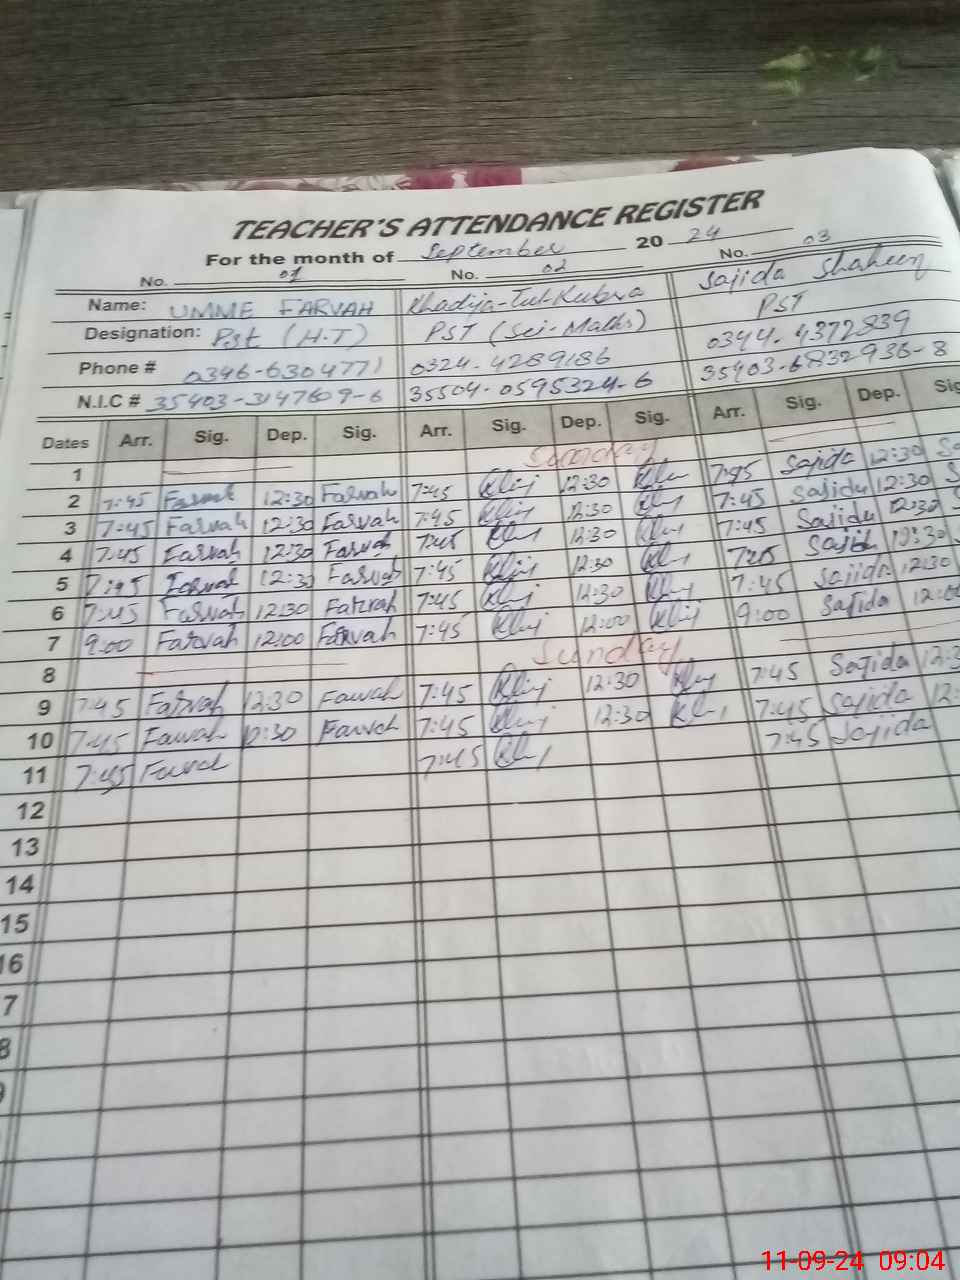 TEACHER'S ATTENDANCE REGISTER
For the month of September 2024
No. 01 No. 02 No. 03
Name: UMME FARVAH Khadija-Tul-Kubra Sajida Shaheen
Designation: Pst (H.T) PST (Sci-Maths) PST
Phone # 0346-6304771 0324-4289186 0344-4372839
N.I.C # 35403-3147609-6 35504-0595324-6 35403-6832936-8
Dates Arr. Sig. Dep. Sig. Arr. Sig. Dep. Sig. Arr. Sig. Dep. Sig
1 Sunday
2 7:45 Farvah 12:30 Farvah 7:45 12:30 7:45 Sajida 12:30 Sa
3 7:45 Farvah 12:30 Farvah 7:45 12:30 7:45 Sajida 12:30 S
4 7:45 Farvah 12:30 Farvah 7:45 12:30 7:45 Sajida 12:30 S
5 7:45 Farvah 12:30 Farvah 7:45 12:30 7:45 Sajida 12:30 S
6 7:45 Farvah 12:30 Farvah 7:45 12:30 7:45 Sajida 12:30
7 9:00 Farvah 12:00 Farvah 7:45 12:00 9:00 Sajida 12:00
8 Sunday
9 7:45 Farvah 12:30 Farvah 7:45 12:30 7:45 Sajida 12:3
10 7:45 Farvah 12:30 Farvah 7:45 12:30 7:45 Sajida 12:
11 7:45 Farvah 7:45 7:45 Sajida
12
13
14
15
16
7
8
9
11-09-24 09:04